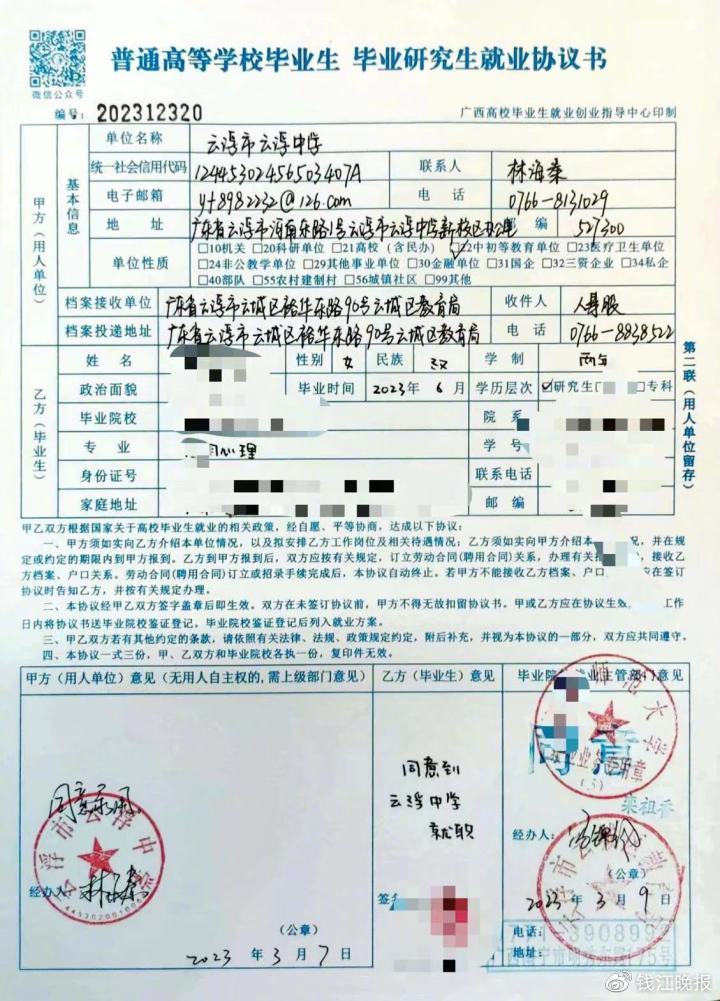 普通高等学校毕业生 毕业研究生就业协议书
微信公众号
编号: 202312320
广西高校毕业生就业创业指导中心印制
甲方(用人单位)
基本信息
单位名称 云浮市云浮中学
统一社会信用代码 12445302456503407A 联系人 林海燊
电子邮箱 yf8982232@126.com 电话 0766-8131029
地址 广东省云浮市河南东路1号云浮市云浮中学新校区办公室 邮编 527300
单位性质 □10机关 □20科研单位 □21高校(含民办) □22中初等教育单位 □23医疗卫生单位
□24非公教学单位 □29其他事业单位 □30金融单位 □31国企 □32三资企业 □34私企
□40部队 □55农村建制村 □56城镇社区 □99其他
档案接收单位 广东省云浮市云城区裕华东路90号云城区教育局 收件人 人事股
档案投递地址 广东省云浮市云城区裕华东路90号云城区教育局 电话 0766-8838522
第二联(用人单位留存)
乙方(毕业生)
姓名 性别 女 民族 汉 学制 两年
政治面貌 毕业时间 2023年6月 学历层次 ☑研究生□ □专科
毕业院校 院系
专业 心理 学号
身份证号 联系电话
家庭地址 邮编
甲乙双方根据国家关于高校毕业生就业的相关政策,经自愿、平等协商,达成以下协议:
一、甲方须如实向乙方介绍本单位情况,以及拟安排乙方工作岗位及相关待遇情况;乙方须如实向甲方介绍本 况,并在规
定或约定的期限内到甲方报到。乙方到甲方报到后,双方应按有关规定,订立劳动合同(聘用合同)关系,办理有关 接收乙
方档案、户口关系。劳动合同(聘用合同)订立或招录手续完成后,本协议自动终止。若甲方不能接收乙方档案、户口 应在签订
协议时告知乙方,并按有关规定办理。
二、本协议经甲乙双方签字盖章后即生效。双方在未签订协议前,甲方不得无故扣留协议书。甲或乙方应在协议生效 工作
日内将协议书送毕业院校签证登记。毕业院校鉴证登记后列入就业方案。
三、甲乙方若有其他约定的条款,请依照有关法律、法规、政策规定约定,附后补充,并视为本协议的一部分,双方应共同遵守。
四、本协议一式三份,甲、乙方和毕业院校各执一份,复印件无效。
甲方(用人单位)意见(无用人自主权的,需上级部门意见)
同意录用
云浮市云浮中学
经办人:
(公章)
2023年3月7日
乙方(毕业生)意见
同意到
云浮中学
就职
签
毕业院 就业主管部门意见
师范大学
业务专用章
(3)
同意
经办人:
(公章)
2023年3月9日
电话: 3908992
地址:
@钱江晚报